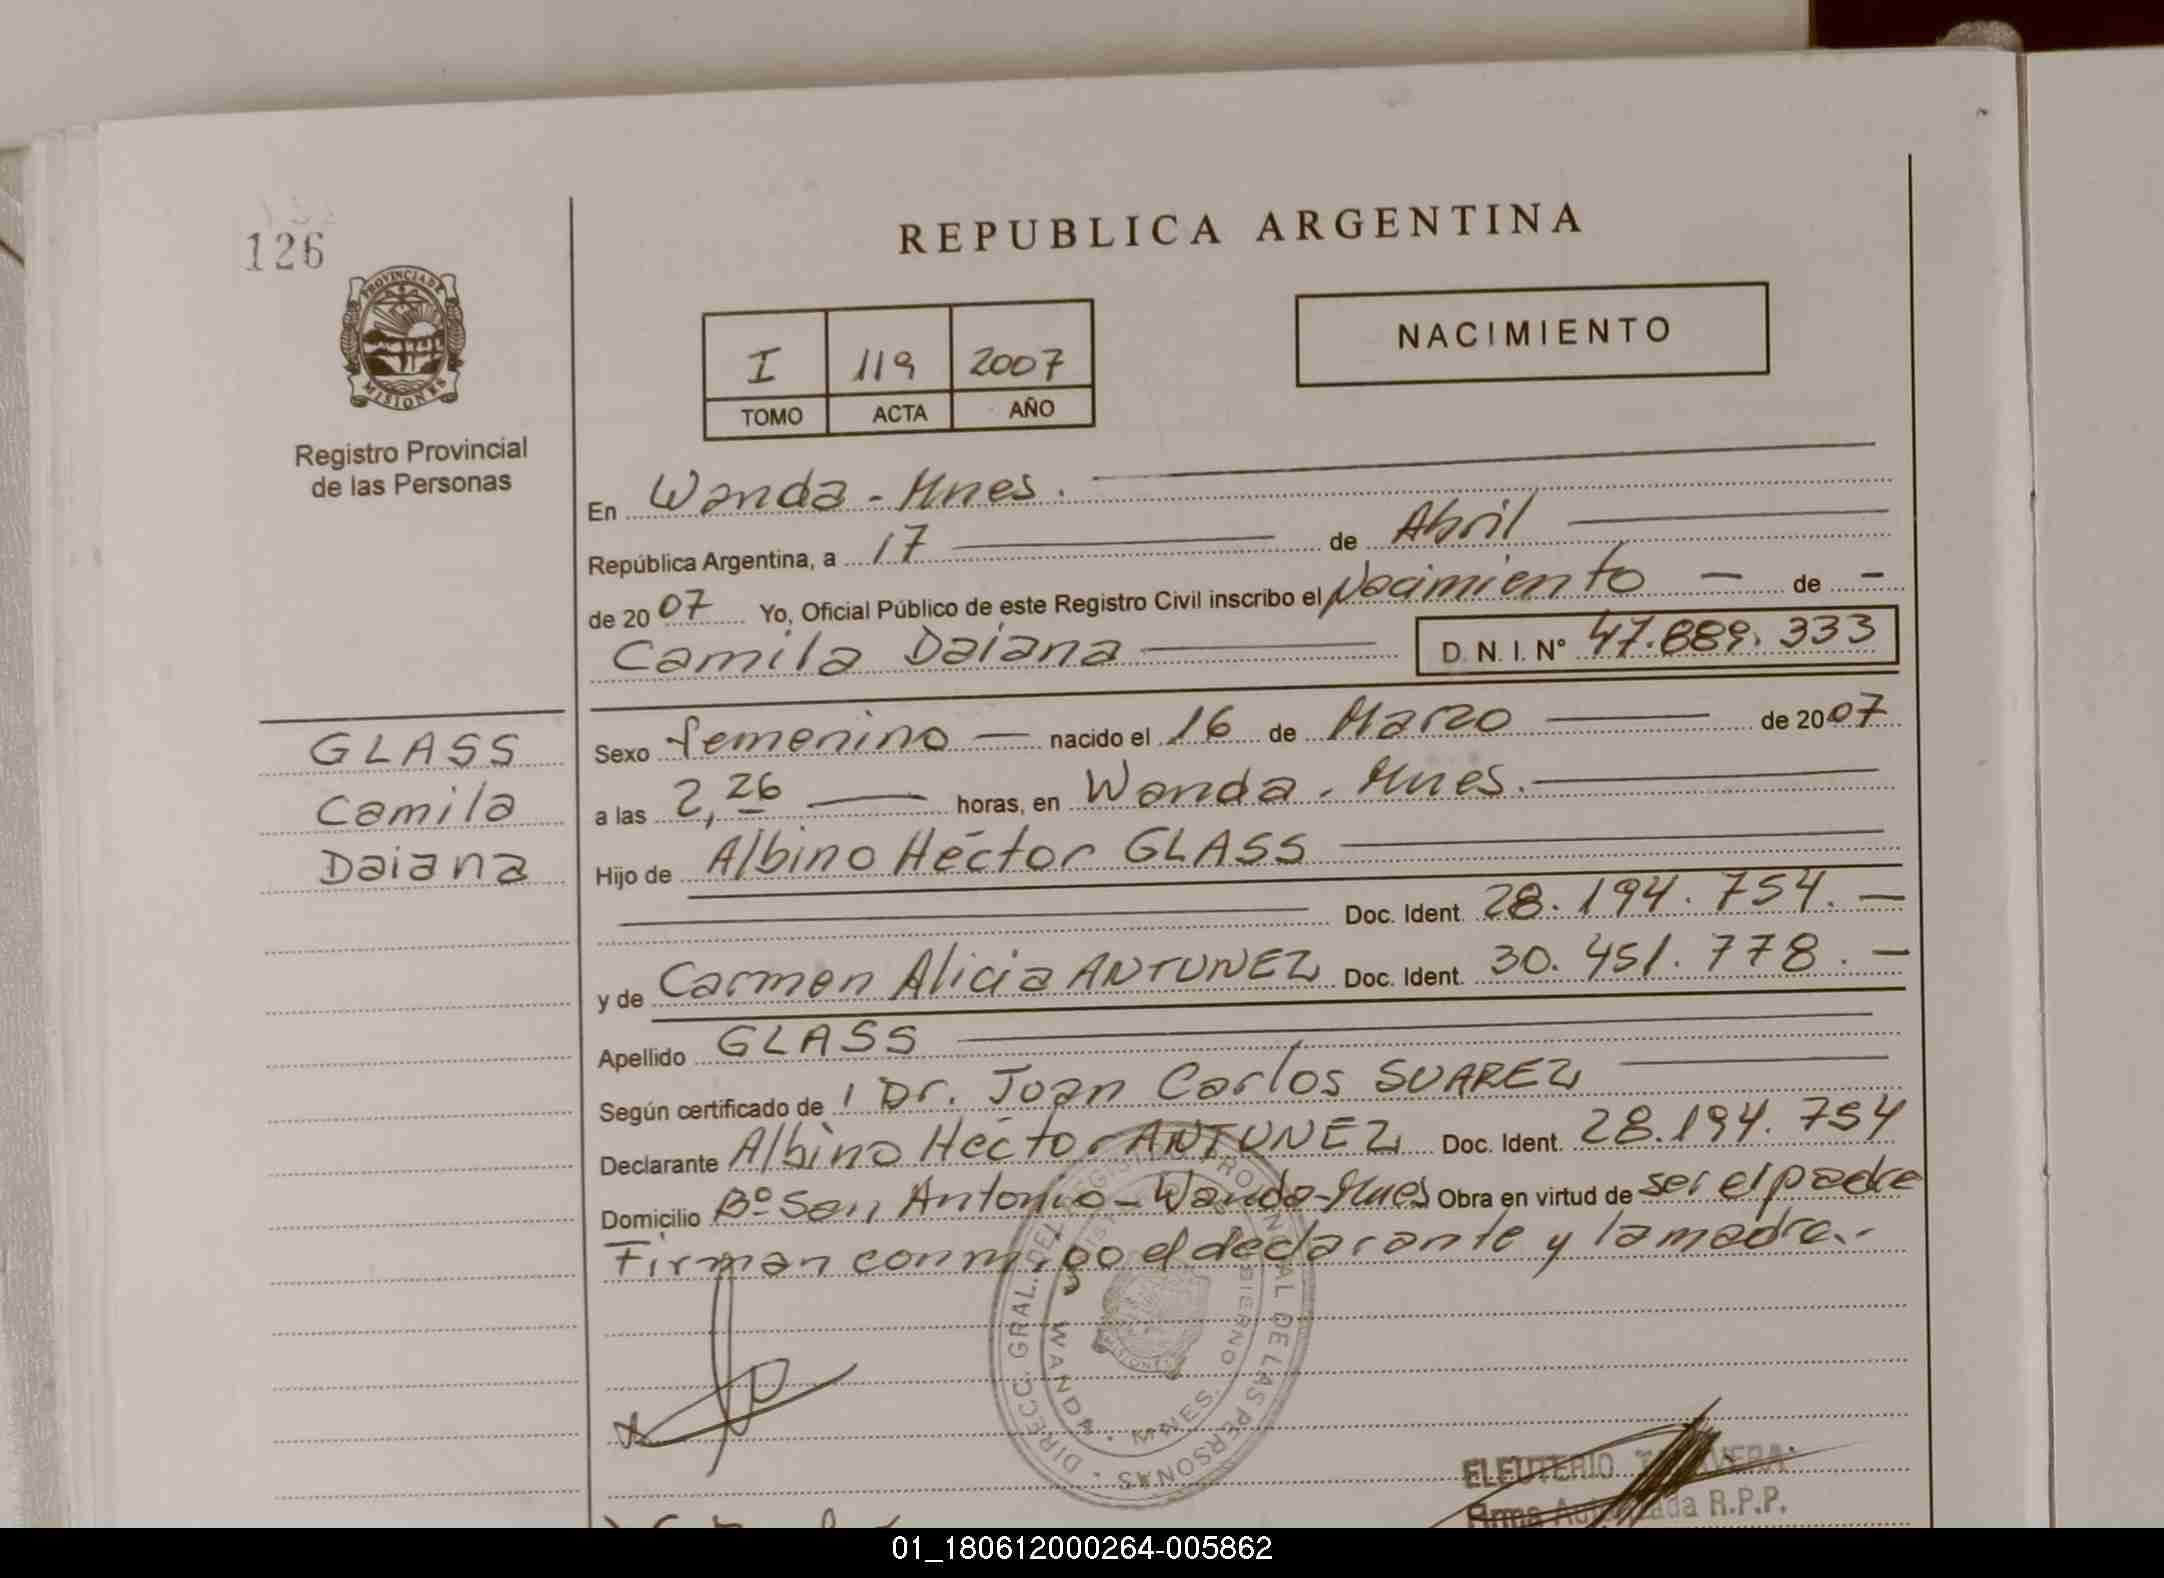 126
PROVINCIA DE
MISIONES
Registro Provincial
de las Personas
REPUBLICA ARGENTINA
I 119 2007
TOMO ACTA AÑO
NACIMIENTO
En Wanda - Mnes.
República Argentina, a 17 de Abril
de 2007 Yo, Oficial Público de este Registro Civil inscribo el Nacimiento — de -
Camila Daiana D. N. I. Nº 47.889.333
GLASS
Camila
Daiana
Sexo femenino — nacido el 16 de Marzo de 2007
a las 2,26 horas, en Wanda. Mnes.
Hijo de Albino Héctor GLASS
Doc. Ident. 28.194.754. —
y de Carmen Alicia ANTUNEZ Doc. Ident. 30.451.778. —
Apellido GLASS
Según certificado de 1 Dr. Juan Carlos SUAREZ
Declarante Albino Héctor ANTUNEZ Doc. Ident. 28.194.754
Domicilio Bº San Antonio - Wanda - Mnes Obra en virtud de ser el padre
Firman conmigo el declarante y la madre.-
DIRECC. GRAL. DEL REGISTRO PROVINCIAL DE LAS PERSONAS
WANDA · MNES.
ELEUTERIO
Firma Autorizada R.P.P.
01_180612000264-005862